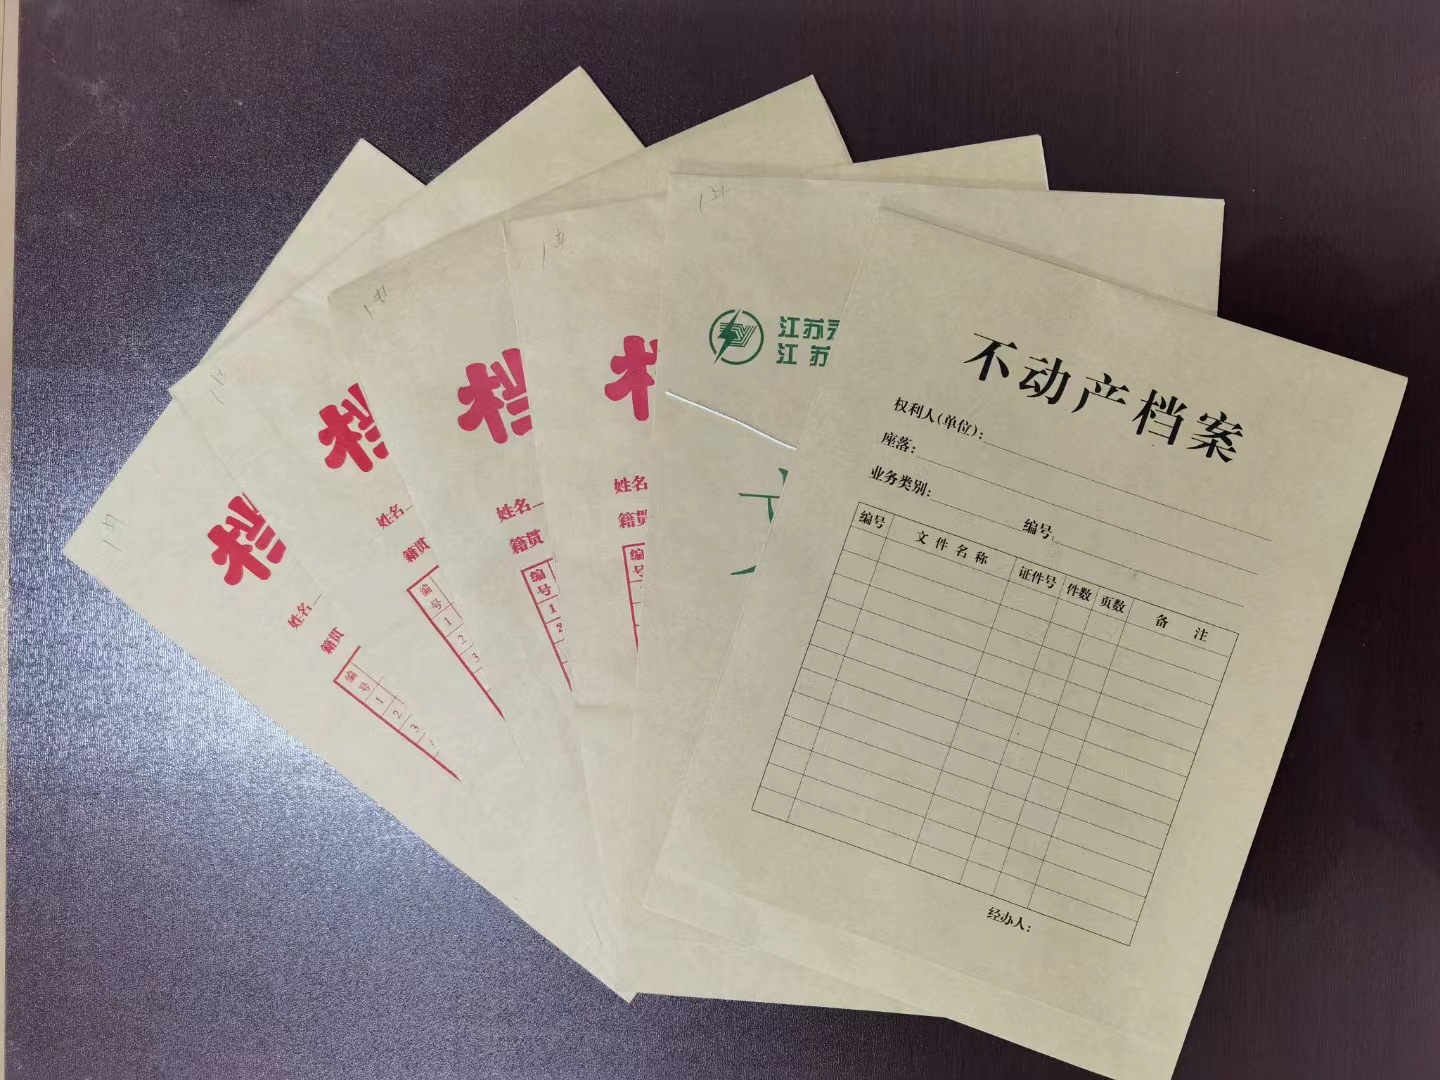 不动产档案
权利人(单位):
座落:
业务类别:
编号:
编号 文件名称 证件号 件数 页数 备注
经办人:
江苏
江苏
姓名
籍贯
编号
1
2
姓名
籍贯
编号
1
2
姓名
籍贯
编号
1
2
3
姓名
籍贯
编号
1
2
3